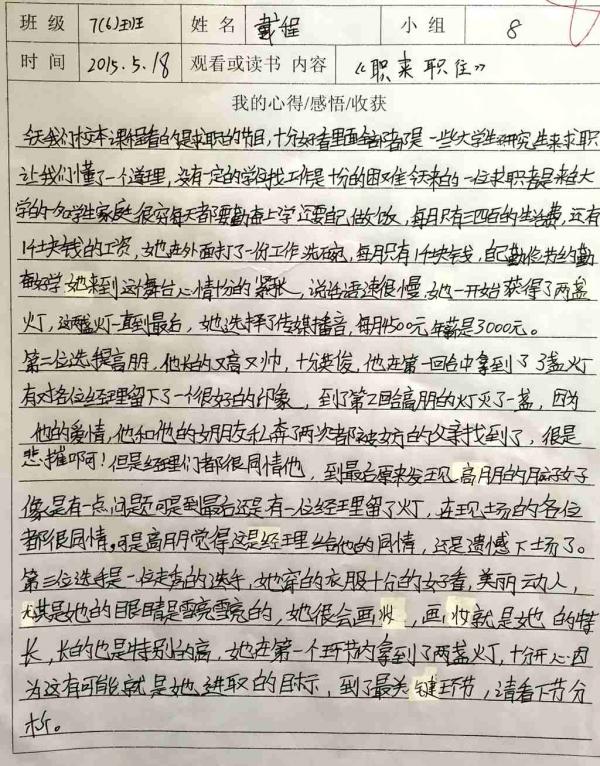 班级 7(6)班 姓名 戴程 小组 8
时间 2015.5.18 观看或读书内容 《职来职往》
我的心得/感悟/收获
今天我们校本课程看的是求职的节目,十分好看里面全部都是一些大学生研究生来求职
让我们懂了一个道理,没有一定的学位找工作是十分的困难今天来的一位求职者是来自大
学的一名学生家庭很穷每天都要勤奋上学还要自己做饭,每月只有三四百的生活费,还有
1千块钱的工资,她在外面打了一份工作洗碗,每月只有1千块钱,自己勤俭节约勤
奋好学她来到这舞台心情十分的紧张,说话语速很慢,她一开始获得了两盏
灯,这两盏灯一直到最后,她选择了传媒播音,每月1500元年薪是3000元。
第二位选手是高朋,他长的又高又帅,十分英俊,他在第一回合中拿到了3盏灯
有对各位经理留下了一个很好的印象,到了第2回合高朋的灯灭了一盏,因为
他的爱情,他和他的女朋友私奔了两次都被女方的父亲找到了,很是
悲摧啊!但是经理们都很同情他,到最后原来发现高朋的好
像是有一点问题可是到最后还是有一位经理留了灯,在现场的各位
都很同情。可是高朋觉得这是经理给他的同情,还是遗憾下场了。
第三位选手是一位走秀的选手,她穿的衣服十分的好看,美丽动人,
尤其是她的眼睛是雪亮雪亮的,她很会画妆,画妆就是她的特
长,长的也是特别的高,她在第一个环节内拿到了两盏灯,十分开心因
为这有可能就是她进取的目标,到了最关键环节,请看下节分
析。